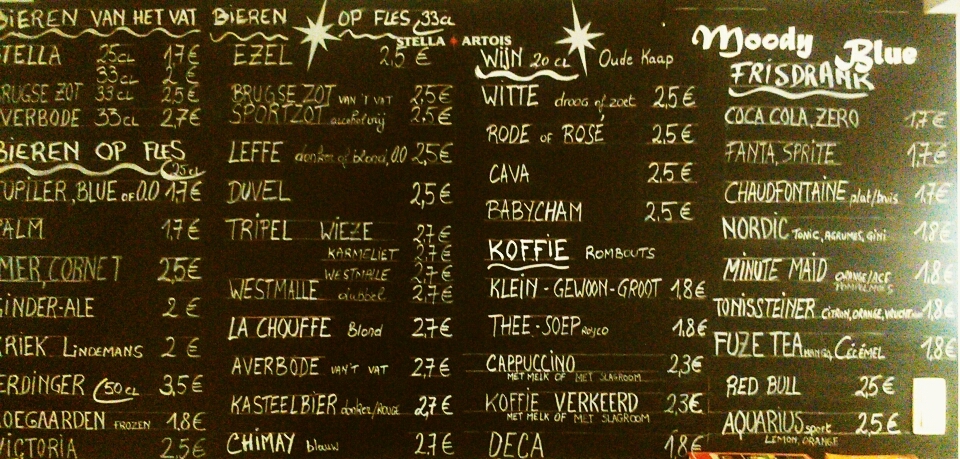 BIEREN VAN HET VAT
STELLA 25CL 1,7€
33CL 2€
BRUGSE ZOT 33CL 2,5€
AVERBODE 33CL 2,7€
BIEREN OP FLES
25CL
JUPILER, BLUE OF 0.0 1,7€
PALM 1,7€
OMER, CORNET 2,5€
GINDER-ALE 2€
KRIEK LINDEMANS 2€
ERDINGER 50CL 3,5€
HOEGAARDEN FROZEN 1,8€
VICTORIA 2,5€
BIEREN OP FLES 33CL
STELLA ARTOIS
EZEL 2,5€
BRUGSE ZOT VAN 'T VAT 2,5€
SPORTZOT alcoholvrij 2,5€
LEFFE donker of blond, 0.0 2,5€
DUVEL 2,5€
TRIPEL WIEZE 2,7€
KARMELIET 2,7€
WESTMALLE 2,7€
WESTMALLE dubbel 2,7€
LA CHOUFFE Blond 2,7€
AVERBODE VAN'T VAT 2,7€
KASTEELBIER donker/Rouge 2,7€
CHIMAY blauw 2,7€
WIJN 20CL Oude Kaap
WITTE droog of zoet 2,5€
RODE OF ROSÉ 2,5€
CAVA 2,5€
BABYCHAM 2,5€
KOFFIE ROMBOUTS
KLEIN-GEWOON-GROOT 1,8€
THEE-SOEP Royco 1,8€
CAPPUCCINO 2,3€
MET MELK OF MET SLAGROOM
KOFFIE VERKEERD 2,3€
MET MELK OF MET SLAGROOM
DECA 1,8€
Moody Blue
FRISDRANK
COCA COLA, ZERO 1,7€
FANTA, SPRITE 1,7€
CHAUDFONTAINE plat/bruis 1,7€
NORDIC TONIC, AGRUMES, GINI 1,8€
MINUTE MAID ORANGE/ACE 1,8€
POMPELMOES
TONISSTEINER CITRON, ORANGE, 1,8€
FUZE TEA MANGO, 1,8€
RED BULL 2,5€
AQUARIUS sport 2,5€
LEMON, ORANGE